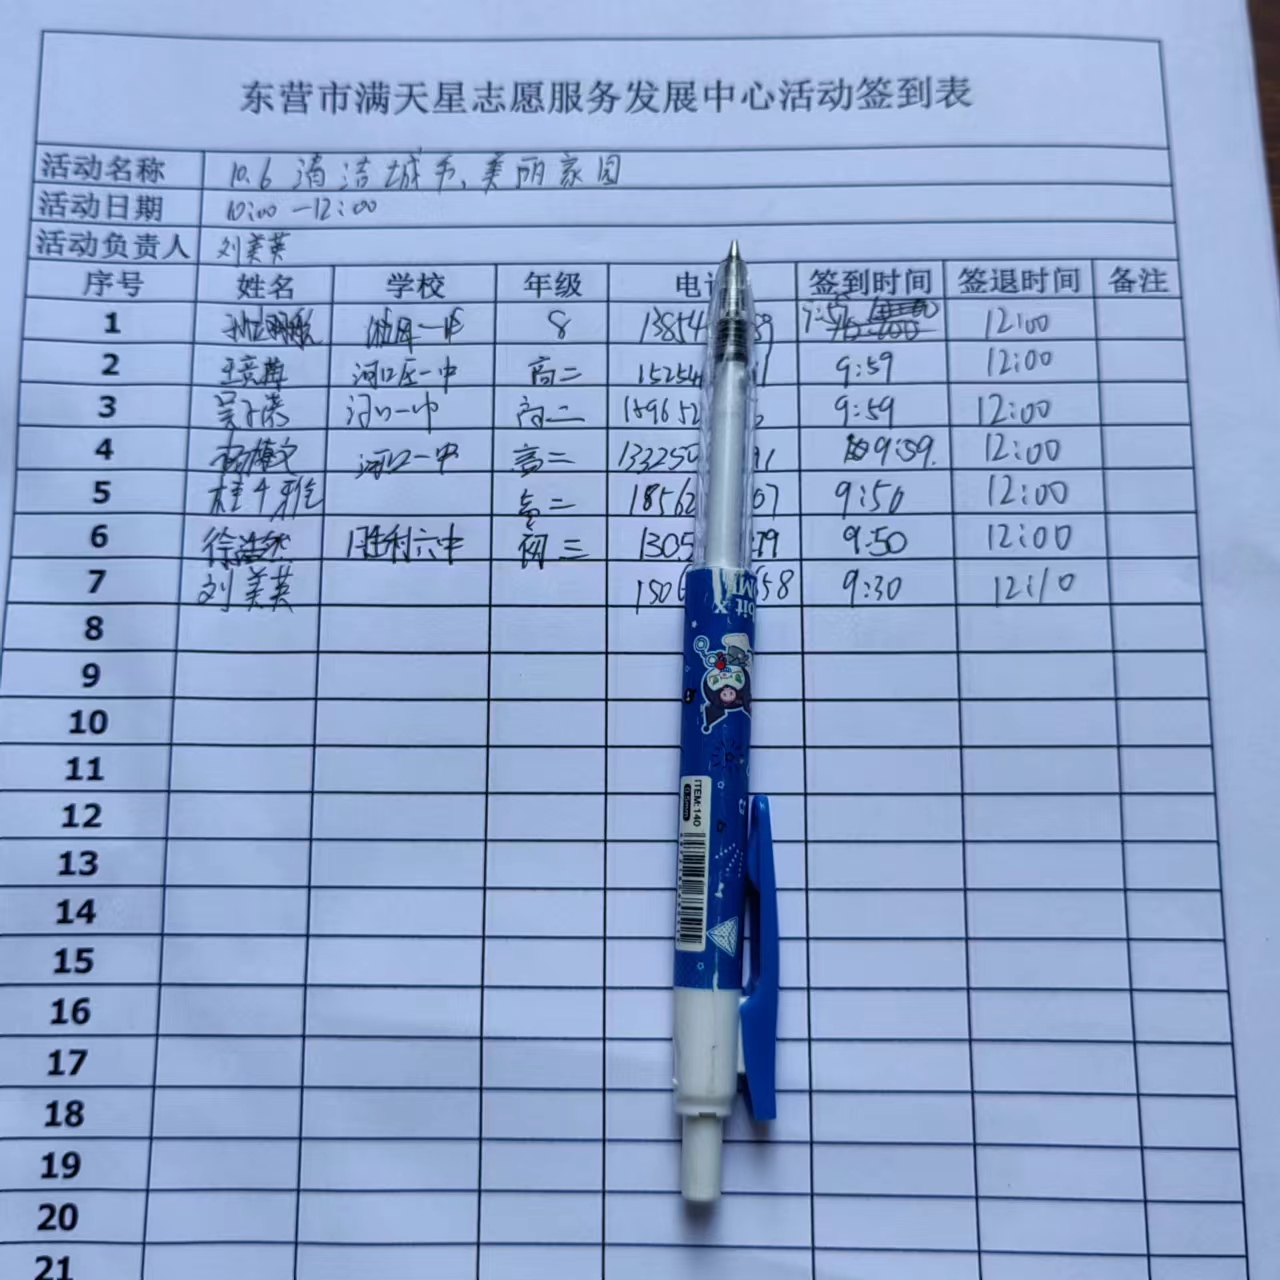 东营市满天星志愿服务发展中心活动签到表
活动名称 10.6 清洁城市、美丽家园
活动日期 10:00-12:00
活动负责人 刘美英
序号 姓名 学校 年级 电 签到时间 签退时间 备注
1 一中 8 13854 39 12:00
2 河口区一中 高二 15254 1 9:59 12:00
3 河口一中 高二 189652 9:59 12:00
4 河口一中 高二 133250 91 9:59. 12:00
5 高二 18562 07 9:50 12:00
6 徐浩然 胜利六中 初三 1305 79 9:50 12:00
7 刘美英 150 658 9:30 12:10
8
9
10
11
12
13
14
15
16
17
18
19
20
21
ITEM:140
0.5mm